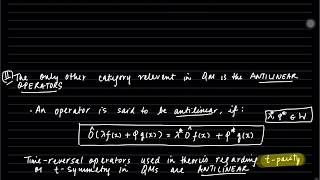 The only other category relevant in QM is the ANTILINEAR
OPERATORS
• An operator is said to be antilinear, if:
Ô(λf(x) + φg(x)) = λ* Ô f(x) + φ* g(x)
Time-reversal operators used in theories regarding t-parity
or t-symmetry in QMs are ANTILINEAR